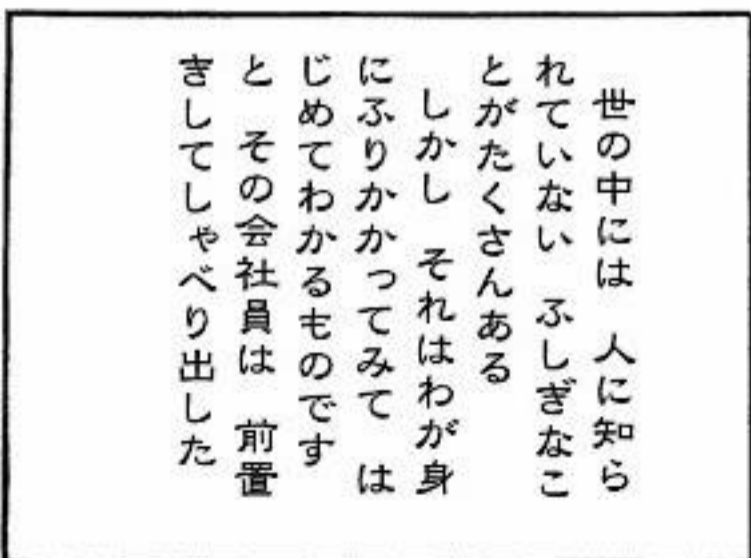 世の中には　人に知ら
れていない　ふしぎなこ
とがたくさんある
　しかし　それはわが身
にふりかかってみて　は
じめてわかるものです
と　その会社員は　前置
きしてしゃべり出した